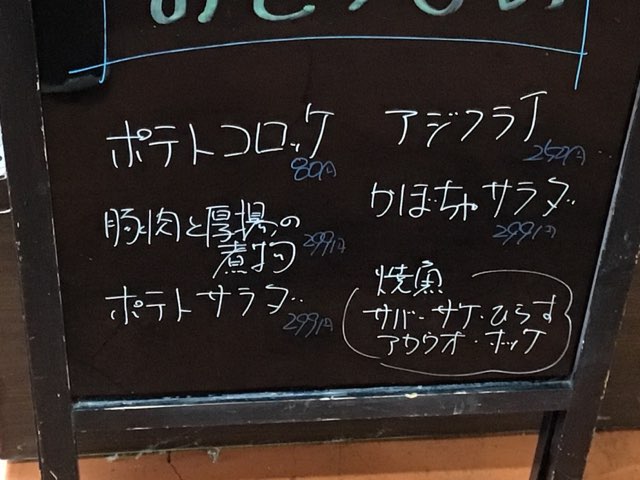 ポテトコロッケ
80円
豚肉と厚揚の
煮物
299円
ポテトサラダ
299円
アジフライ
250円
かぼちゃサラダ
299円
焼魚
サバ・サケ・ひらす
アカウオ・ホッケ